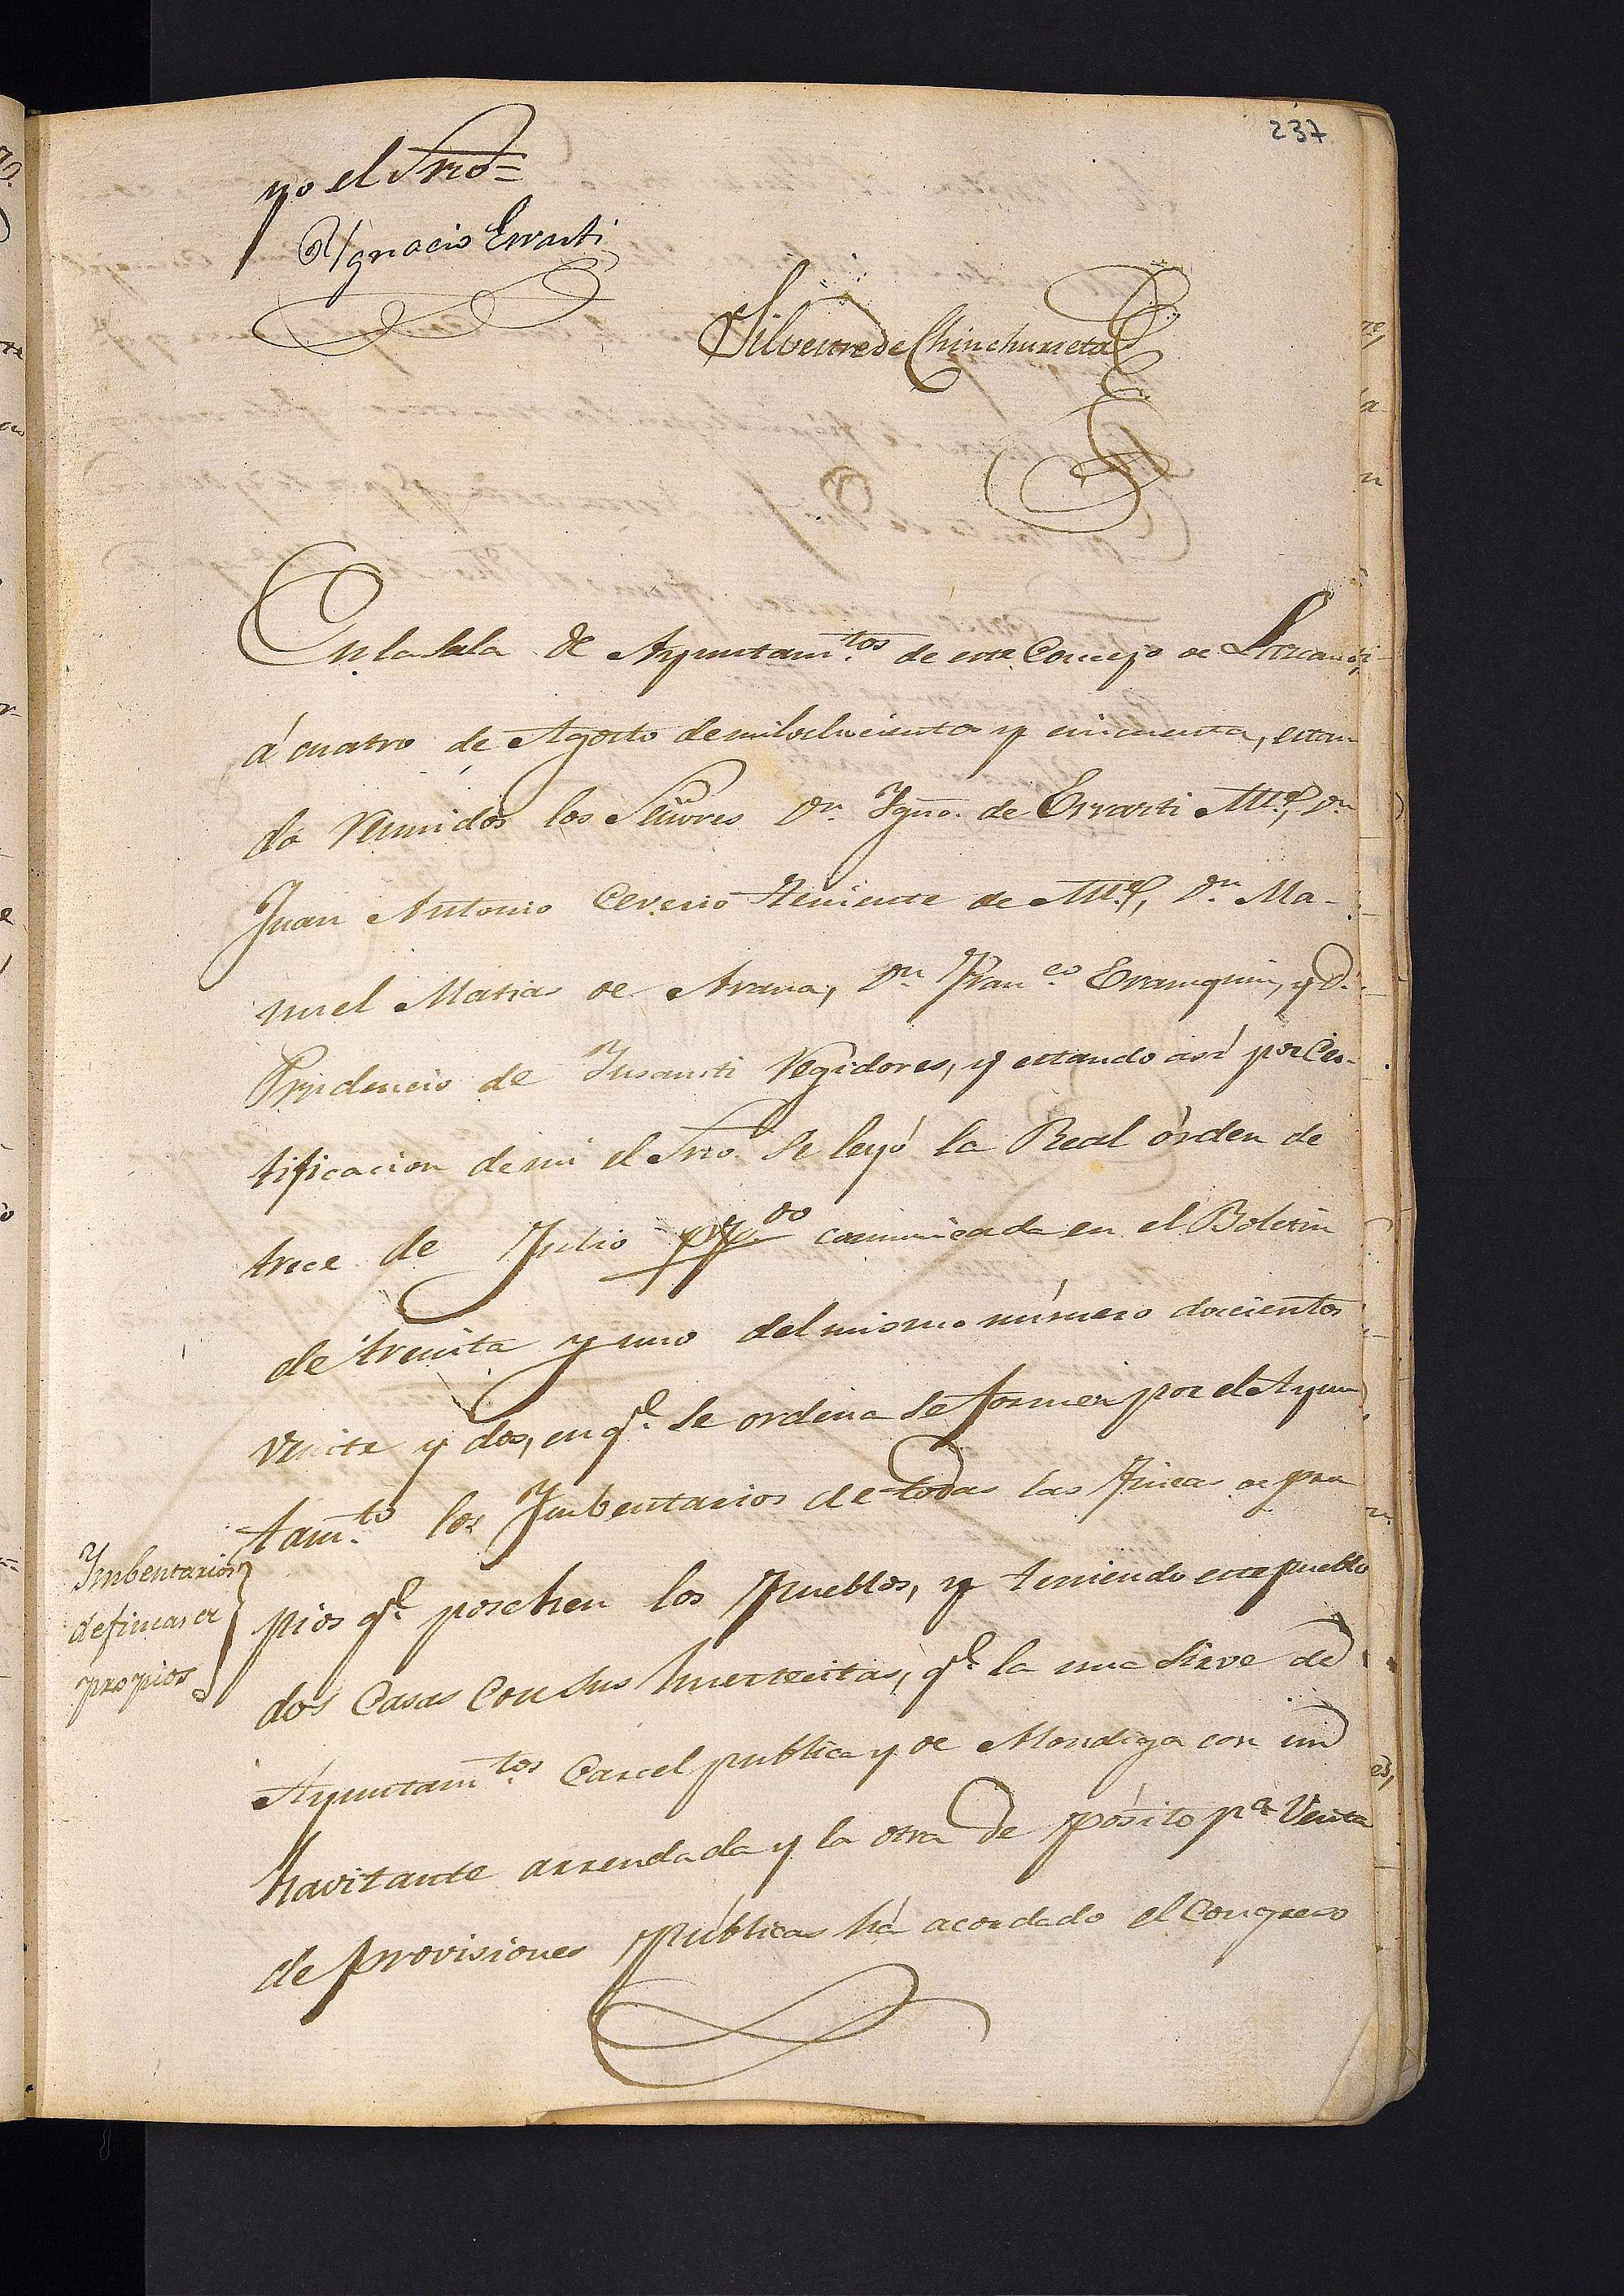 237
yo el Srio=
Ygnacio Errasti
Silvestre de Chinchurreta
En la Sala de Ayuntam.tos de este Concejo de Lizarza
á cuatro de Agosto de mil ochocientos y cincuenta, estan
do reunidos los Señores Dn. Ygno. de Errasti Alle, Dn
Juan Antonio Ceverio Teniente de Alle, Dn. Ma-
nuel Matias de Arana, Dn. Franco. Eranguin, y D.
Prudencio de Insausti Regidores, y estando así por Cer-
tificacion de mi el Srio. se leyó la Real órden de
trece de Julio ppdo comunicada en el Boletin
de treinta y uno del mismo número docientos
veinte y dos, en qe. se ordena se formen por el Ayun
tam.to los Imbentarios de todas las fincas de pro
pios qe. posehen los Pueblos, y teniendo este pueblo
dos Casas con sus huertecitas, qe. la una sirve de
Ayuntam.tos Carcel publica y de Alondiga con un
havitante arrendada y la otra de pósito pa. Venta
de provisiones públicas há acordado el Congreso
Imbentarios
de fincas de
propios